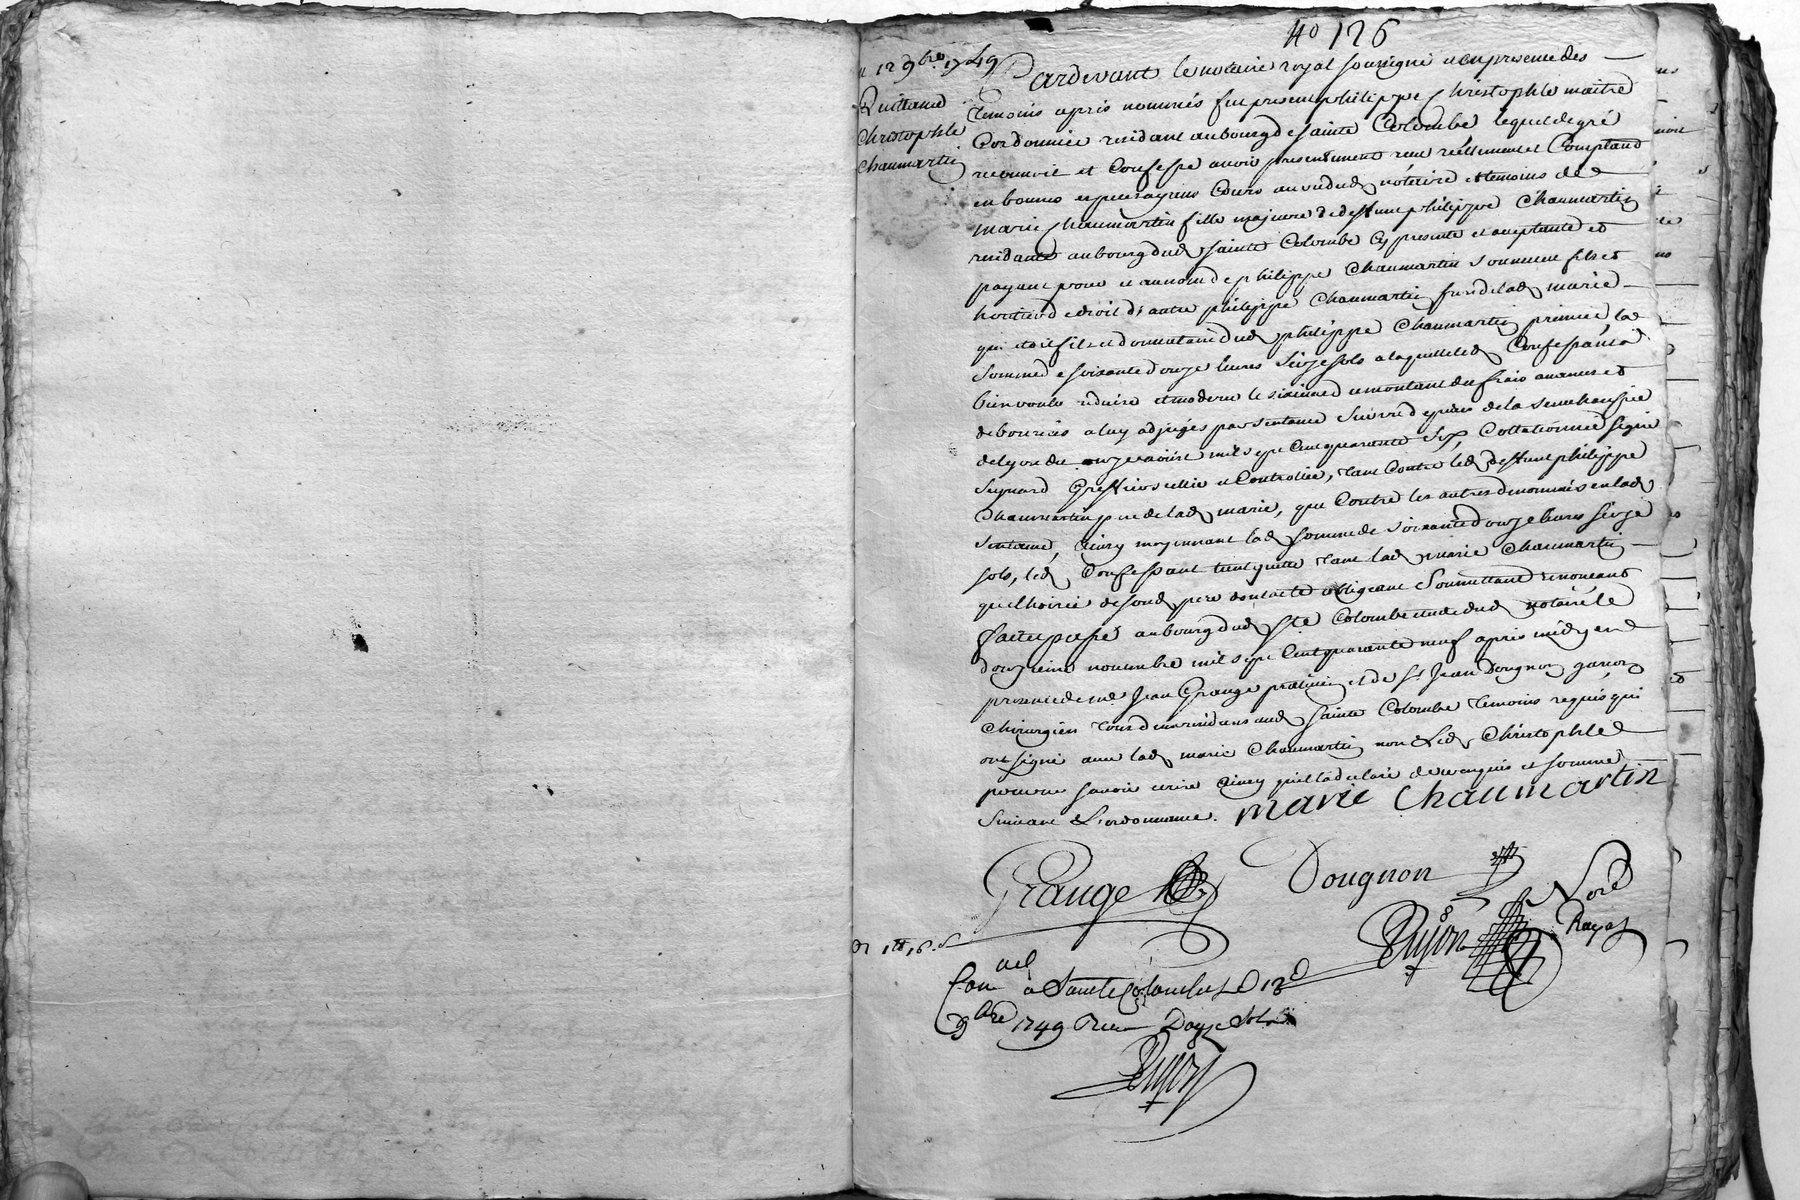 No 126
12 9bre 1749
Quittance
Christophle
Chaumartin
Pardevant le notaire royal soussigné et en presence des
temoins apres nommés fut present philippe Christophle maitre
Cordonnier residant au bourg de sainte Colombe lequel de gré
reconnoit et Confesse avoir presentement receu réellement et Comptand
en bonnes especes ayans Cours au veu dud notaire et temoins de
marie Chaumartin fille majeure de deffunt philippe Chaumartin
residante au bourg dud sainte Colombe Cy presente et acceptante et
payant pour et au nom de philippe Chaumartin son neveu fils et
heritier de droit d'autre philippe Chaumartin frere de lad marie
qui etoit fils et donnataire dud philippe Chaumartin premier la
somme de soixante douze livres seize sols a laquelle led Confessant a
bien voulu reduire et moderer le montant des frais avances et
debourcés a luy adjugés par sentence de la senechaussée
de lyon du onze aoust mil sept Cent quarante six, Collationnée signé
Greffier scellée et Controllée, tant Contre led deffunt philippe
Chaumartin pere de lad marie, que Contre les autres denommés en lad
sentence, Ainsy moyennant lad somme de soixante douze livres seize
sols, led Confessant tient quitte tant lad marie Chaumartin
que l'hoirie de sond pere dont acte obligeant soumettant renonceant
fait et passé au bourg dud Ste Colombe etude dud notaire le
douzieme novembre mil sept Cent quarante neuf apres midy en
presence de me Jean Grange praticien et de sr Jean Dougnon garcon
Chirurgien tous deux residans aud sainte Colombe temoins requis qui
ont signé avec lad marie Chaumartin non led Christophle
pour ne savoir ecrire Ainsy qu'il l'a declaré de ce enquis et sommé
suivant L'ordonnance. marie Chaumartin
Grange Dougnon
Pujon Nore
Royal
Con à Sainte Colombe le 12
9bre 1749 Receu Douze Sols
Pujon